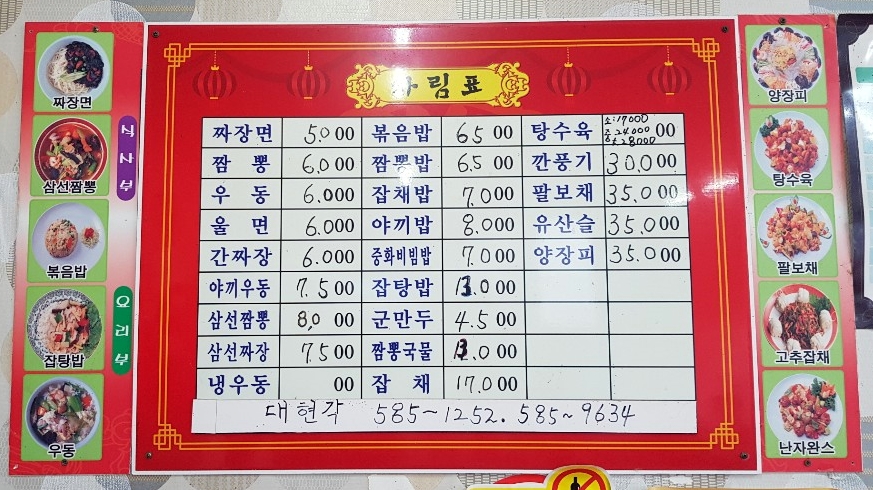 차림표
짜장면 5.000 볶음밥 6500 탕수육 소:17000 중:24000 대:28000 00
짬뽕 6.000 짬뽕밥 6.500 깐풍기 30.000
우동 6.000 잡채밥 7.000 팔보채 35.000
울면 6.000 야끼밥 8.000 유산슬 35.000
간짜장 6.000 중화비빔밥 7.000 양장피 35.000
야끼우동 7.500 잡탕밥 13.000
삼선짬뽕 8.000 군만두 4.500
삼선짜장 7.500 짬뽕국물 13.000
냉우동 00 잡채 17.000
대현각 585~1252. 585~9634
짜장면
삼선짬뽕
볶음밥
잡탕밥
우동
식사부
요리부
양장피
탕수육
팔보채
고추잡채
난자완스